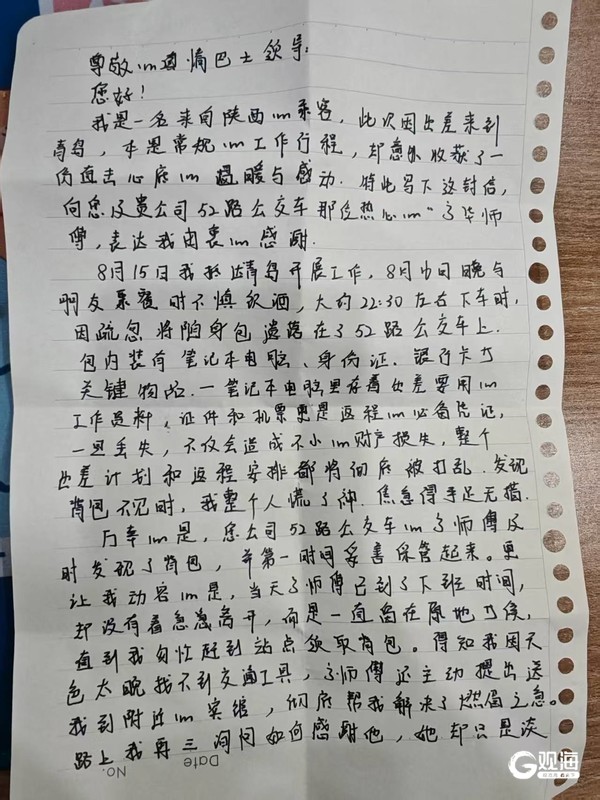 尊敬的道熵巴士领导:
您好!
我是一名来自陕西的乘客,此次因出差来到
青岛,本是常规的工作行程,却意外收获了一
份直击心底的温暖与感动.特此写下这封信,
向您及贵公司52路公交车那位热心的"于华师
傅,表达我由衷的感谢.
8月15日我抵达青岛开展工作,8月 晚与
朋友聚餐时不慎饮酒,大约22:30左右下车时,
因疏忽将随身包遗落在了52路公交车上.
包内装有笔记本电脑、身份证、银行卡等
关键物品.—笔记本电脑里存着出差要用的
工作资料,证件和机票更是返程的必备凭证,
一旦丢失,不仅会造成不小的财产损失,整个
出差计划和返程安排都将彻底被打乱.发现
背包不见时,我整个人慌了神.焦急得手足无措.
万幸的是,您公司52路公交车的于师傅及
时发现了背包,并第一时间妥善保管起来。更
让我动容的是,当天于师傅已到了下班时间,
却没有着急急离开,而是一直留在原地等候,
直到我匆忙赶到站点领取背包。得知我因天
色太晚找不到交通工具,于师傅还主动提出送
我到附近的宾馆,彻底帮我解决了燃眉之急。
路上我再三询问如何感谢他,她却只是淡
No. Date
G观海